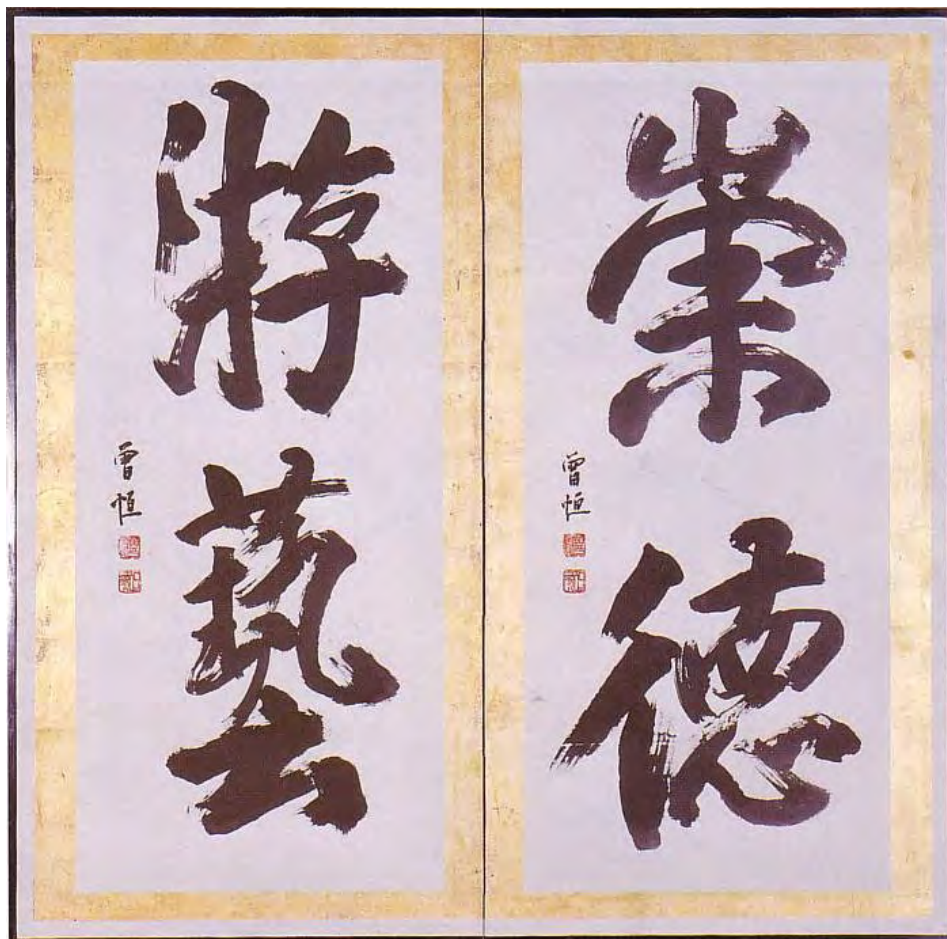 崇德
曾恒
游藝
曾恒